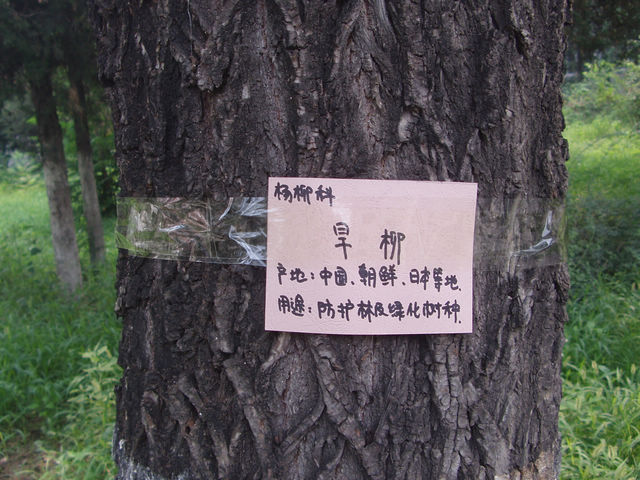 杨柳科
旱柳
产地：中国、朝鲜、日本等地.
用途：防护林及绿化树种.